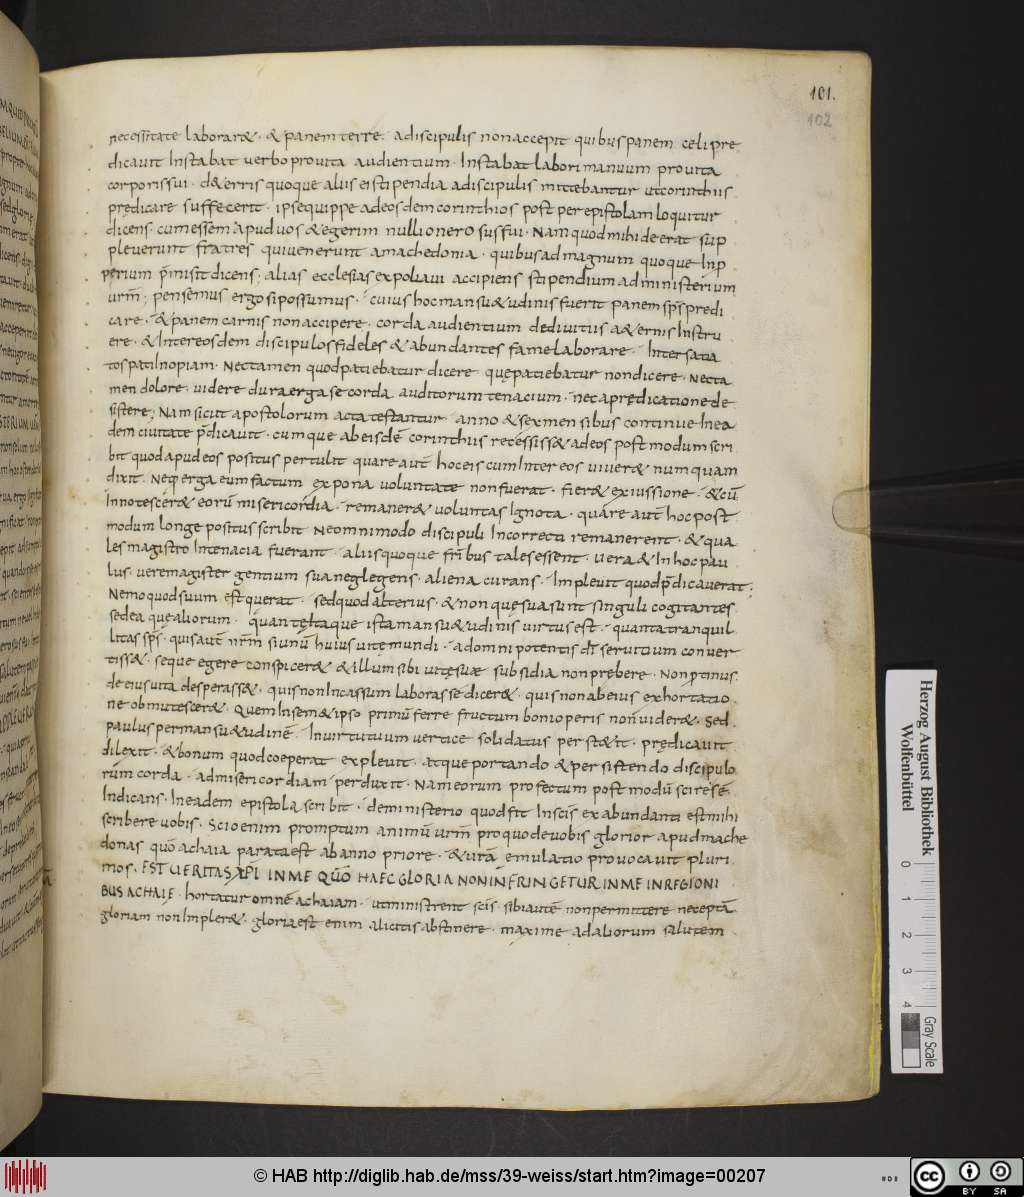 101.
102
necessitate laborar& · & panem terre · adiscipulis non accepit quibus panem celi pre
dicauit Instabat uerbo pro uita audientium · Instabat labori manuum pro uita
corporis sui · d& erris quoque aliis ei stipendia adiscipulis mittebantur ut corinthiis
prędicare suffecerit · ipse quippe adeosdem corinthios post per epistolam loquitur
dicens · cum essem apud uos & egerim nulli onerosus fui · Nam quod mihi deerat sup
pleuerunt fratres qui uenerunt amachedonia · quibus ad magnum quoque Inp
perium p̄misit dicens; alias ecclesias expoliaui accipiens stipendium ad ministerium
urm̄; pensemus ergo si possumus · cuius hoc mansu&udinis fuerit panem sp̄s predi
care · & panem carnis non accipere · corda audientium dediuitiis a&ernis Instru
ere · & Inter eosdem discipulos fideles & abundantes fame laborare · Inter satia
tos pati Inopiam · Nec tamen quod patiebatur dicere quę patiebatur non dicere · Nec ta
men dolore · uidere dura erga se corda auditorum tenacium · nec apredicatione de
sistere; Nam sicut apostolorum acta testantur · anno & sex mensibus continue In ea
dem ciuitate p̄dicauit · cumque ab eisdē corinthiis recessiss& adeos postmodum scri
bit quod apud eos positus pertulit quare aut̄ hoc eis cum Inter eos uiuer& numquam
dixit Neq erga eum factum ex pona uoluntate non fuerat · fier& ex iussione · & cū
Innotescer& eorū misericordia · remaner& uoluntas Ignota · quare aut̄ hoc post
modum longe positus scribit Ne omnimodo discipuli Incorrecti remanerent · & qua
les magistro Intenacia fuerant · aliis quoque fr̄ibus tales essent · uera & In hoc pau
lus · uere magister gentium sua neglegens · aliena curans · Impleuit quod p̄dicauerat;
Nemo quod suum est querat · sed quod alterius · & non quę sua sunt singuli cogitantes
sed ea que aliorum · quanta ętaque ista mansu&udinis uirtus est · quanta tranquil
litas sp̄s · quis aut̄ nr̄m si unū huius uitę mundi · adomni potentis dī seruitium conuer
tiss& · seque egere conspicer& & illum sibi uitę suæ subsidia non prebere · Non p̱tinus
de eius uita desperass& · quis non Incassum laborasse dicer& · quis non ab eius exhortatio
ne obmutescer& · Quem In sem&ipso primū ferre fructum boni operis non uider& · Sed
paulus per mansu&udinē · In uirtutum uertice solidatus perst&it · prędicauit
dilexit · & bonum quod coeperat expleuit · atque portando & persistendo discipulo
rum corda · admisericordiam perduxit · Nam eorum profectum postmodū scire sē
Indicans · In eadem epistola scribit · de ministerio quod fit In scīs ex abundanti est mihi
scribere uobis · Scio enim promptum animū ur̄m pro quo de uobis glorior apud mache
donas quō achaia parata est ab anno priore · & ur̄a emulatio prouocauit pluri
mos · EST UERITAS XPI IN ME QUŌ HAEC GLORIA NON INFRINGETUR IN ME IN REGIONI
BUS ACHAIĘ · hortatur omnē achaiam · ut ministrent scīs · sibi autē non permittere neceptā
gloriam non Impler& · gloria est enim a licitis abstinere · maxime ad aliorum salutem
Herzog August Bibliothek
Wolfenbüttel
0
1
2
3
4
Gray Scale
© HAB http://diglib.hab.de/mss/39-weiss/start.htm?image=00207
cc BY SA